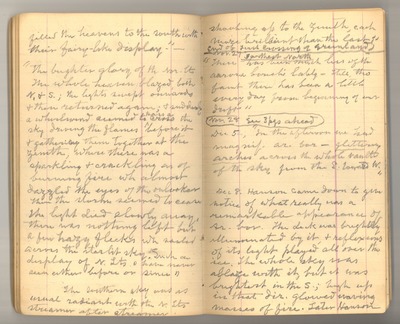 filled the heavens to the south with
their fairy-like display."
"The brighter glory of the nr. lts
The whole heaven blazed both
N. & S.; the light swept
& then retired again, & suddenly
a whirlwind seemed to the
sky driving the flames before it
& gathering them together at the
zenith, where there was a
sparkling & crackling as of
burning fire wh almost
dazzled the eyes of the onlooker
the light died slowly away,
there was nothing left but
a few hazy flecks wh sailed
across the starlit sky. Such a
display of N. lts I have never
seen either before or since"
The northern sky was as
usual radiant with the N. lts
streamer after streamer
shooting up to the zenith each
more brilliant than the last."
End of First Crossing of Greenland
Nov. Farthest North
There was much less of the
aurora boreals lately - still this
faint there has been a little
every day from beginning of our
drift.
Nov. 28 See 3 pgs ahead
Dec 5. In the afternoon we had
magnif. ar. bor - glittering
arches across the whole vault
of the sky from the E. toward W."
Dec. 8. Hansen came down to give
notice of what really was a
remarkable appearance of
ar. bor. The deck was brightly
illuminated by it & reflections
of its light played all over the
ice. The whole sky was
ablaze with it, but it was
brightest in the S; high up
in that dir. glowed waving
masses of fire. Later Hansen